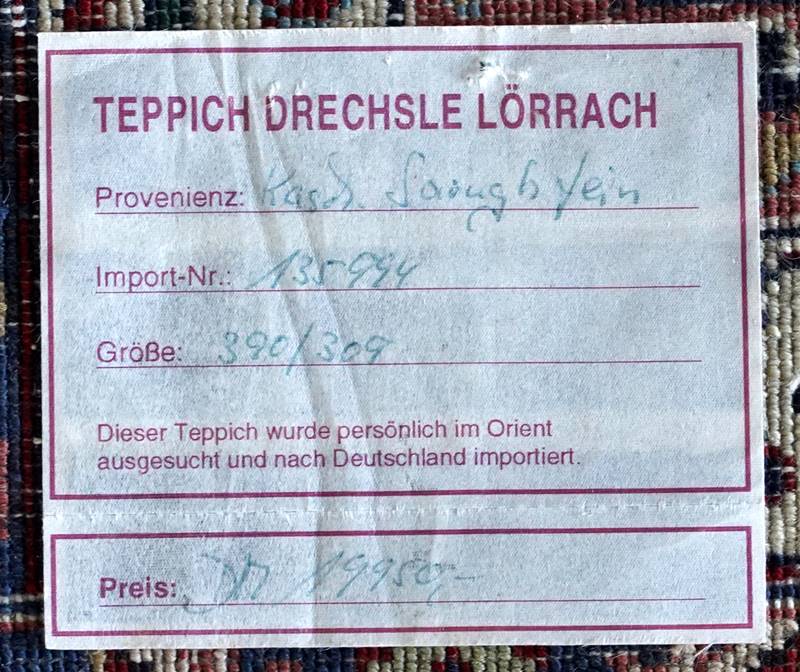 TEPPICH DRECHSLE LÖRRACH
Provenienz: fein
Import-Nr.: 135994
Größe: 390/309
Dieser Teppich wurde persönlich im Orient
ausgesucht und nach Deutschland importiert.
Preis: DM 19950,-